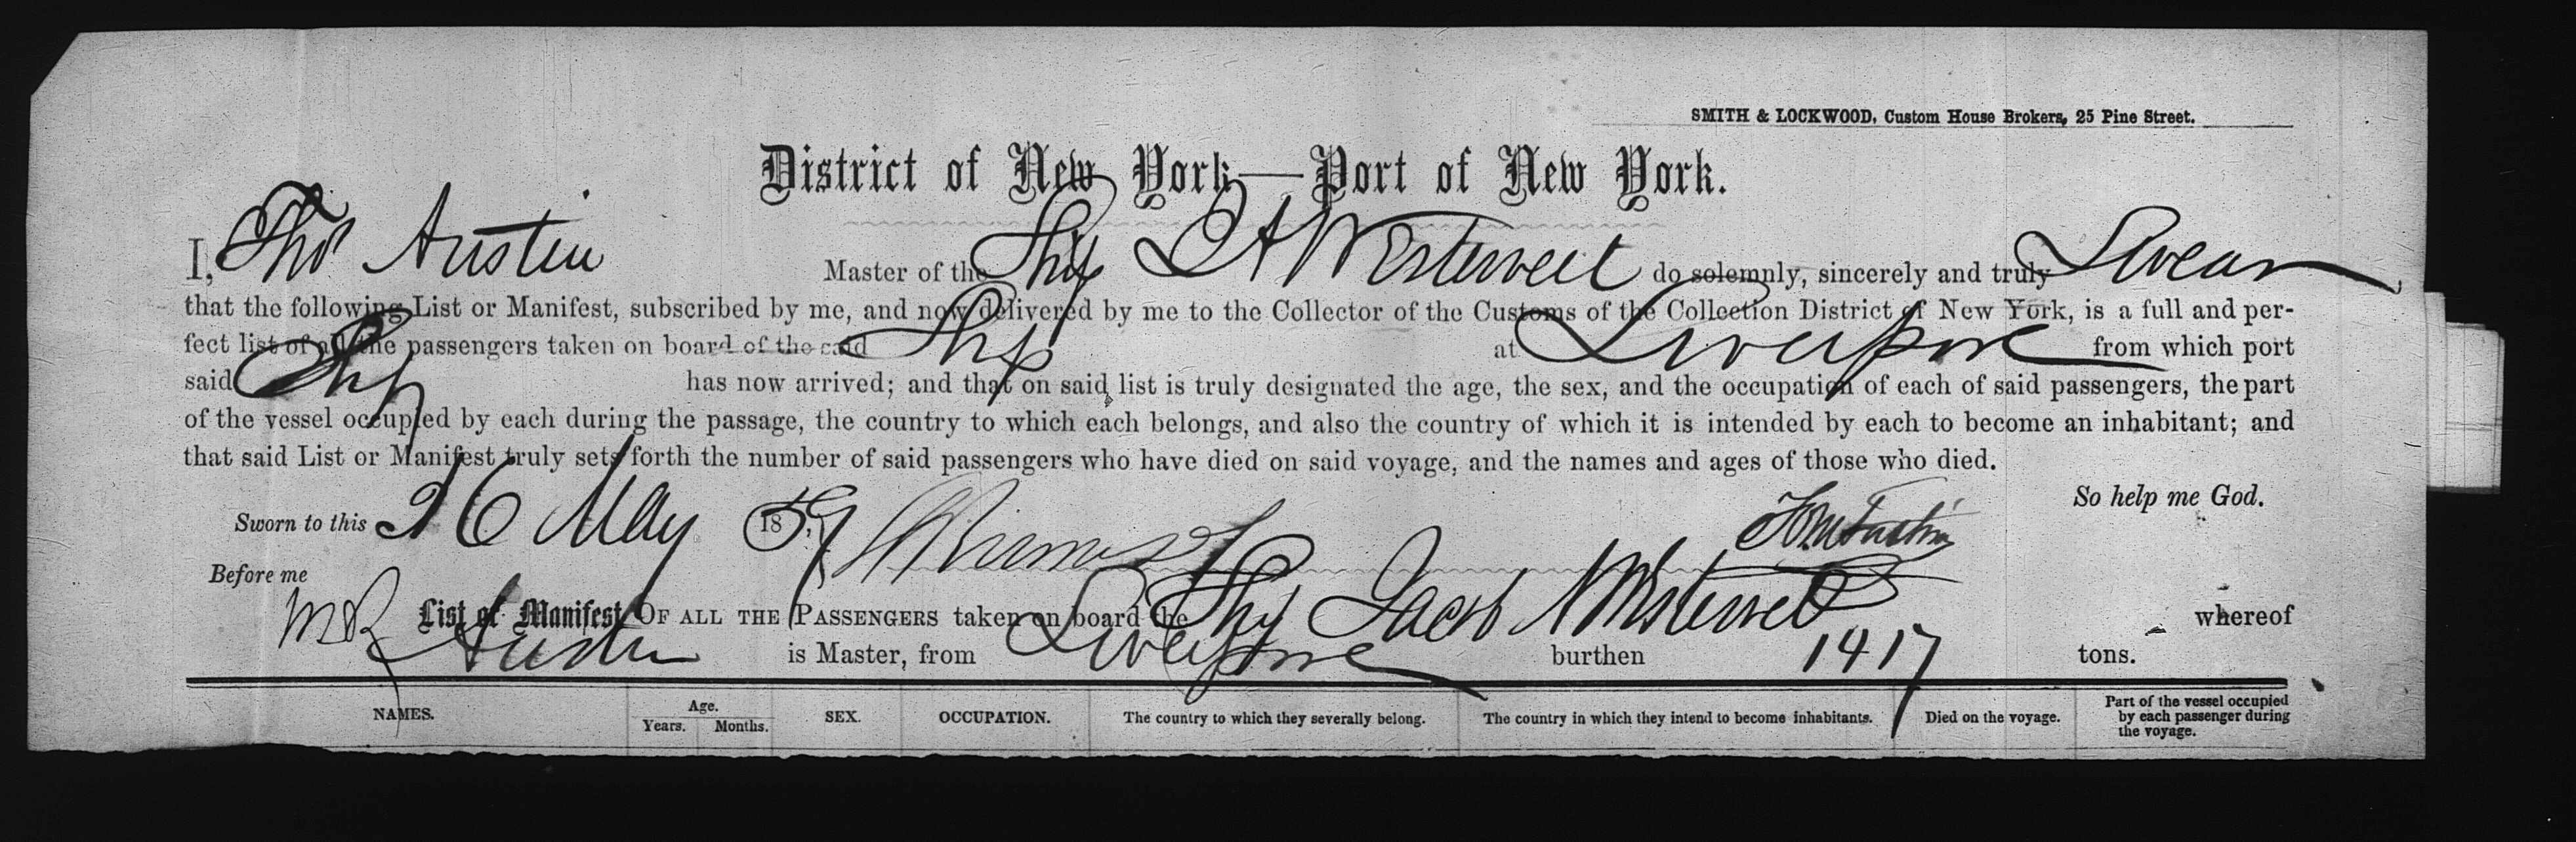 SMITH & LOCKWOOD, Custom House Brokers, 25 Pine Street.
District of New York—Port of New York.
I, Thos Austin Master of the Ship J A Westervelt do solemnly, sincerely and truly Swear
that the following List or Manifest, subscribed by me, and now delivered by me to the Collector of the Customs of the Collection District of New York, is a full and per-
fect list of all the passengers taken on board of the said Ship at Liverpool from which port
said Ship has now arrived; and that on said list is truly designated the age, the sex, and the occupation of each of said passengers, the part
of the vessel occupied by each during the passage, the country to which each belongs, and also the country of which it is intended by each to become an inhabitant; and
that said List or Manifest truly sets forth the number of said passengers who have died on said voyage, and the names and ages of those who died.
So help me God.
Sworn to this 26 May 1859
Before me
List or Manifest OF ALL THE PASSENGERS taken on board the Ship Jacob A Westervelt whereof
Austin is Master, from Liverpool burthen 1417 tons.
NAMES. Age. Years. Months. SEX. OCCUPATION. The country to which they severally belong. The country in which they intend to become inhabitants. Died on the voyage. Part of the vessel occupied by each passenger during the voyage.